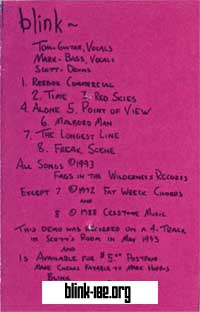 blink~
Tom-Guitar, Vocals
Mark-Bass, Vocals
Scott-Drums
1. Reebok Commercial
2. Time 3. Red Skies
4. Alone 5. Point of View
6. Marlboro Man
7. The Longest Line
8. Freak Scene
All Songs ©1993
Fags in the Wilderness Records
Except 7 ©1992 Fat Wreck Chords
and
8 © 1988 Cesstone Music
This demo was recorded on a 4-track
in Scott's Room in May 1993
and
Is Available for $5.00 Postpaid
Make Checks Payable to Mark Hoppus
Blink
blink-182.org